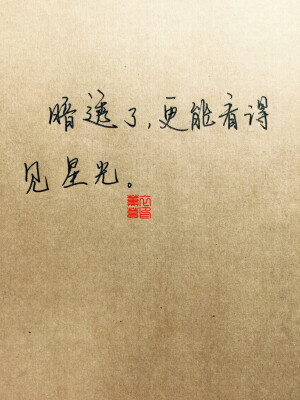 暗透了,更能看得
见星光。